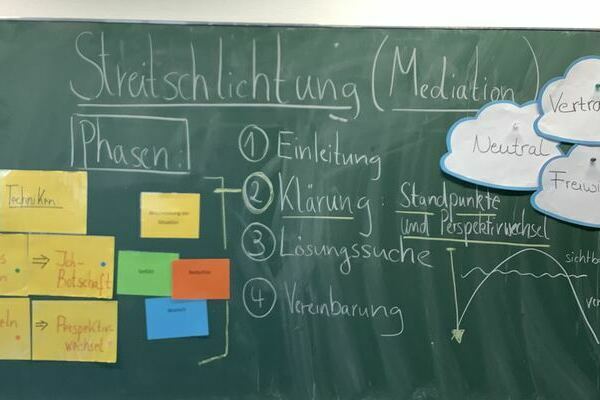 Streitschlichtung (Mediation)
Phasen:
① Einleitung
② Klärung: Standpunkte
und Perspektivwechsel
③ Lösungssuche
④ Vereinbarung
Vertra
Neutral
Freiwi
Techniken
⇒ Ich-
Botschaft
eln ⇒ Perspektiv-
wechsel
Gefühl
Wunsch
sichtb